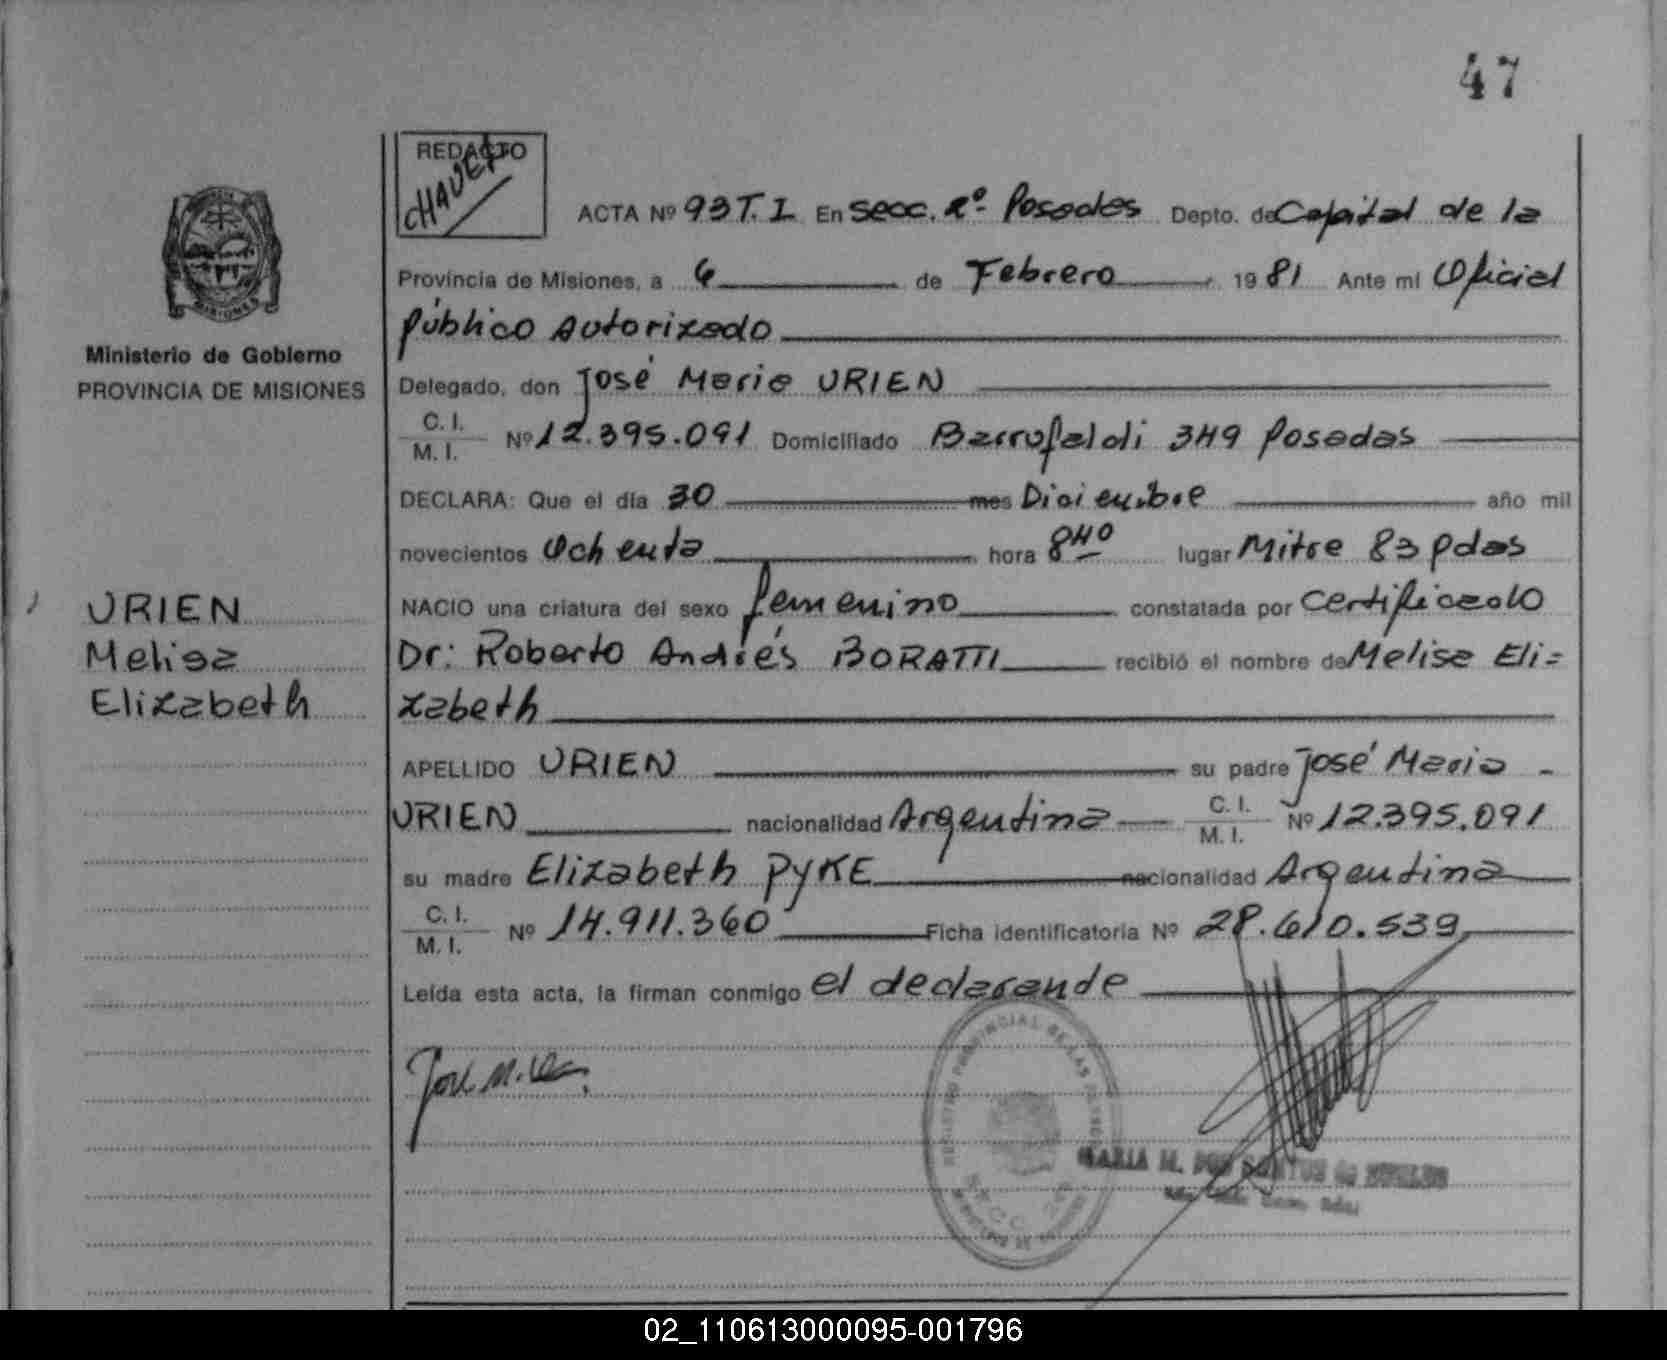 47
REDACTO
CHAVEZ
ACTA Nº 93 T. I En Secc. 2º Posadas Depto. de Capital de la
Provincia de Misiones, a 6 de Febrero 1981 Ante mi Oficial
Público Autorizado
Ministerio de Gobierno
PROVINCIA DE MISIONES
Delegado, don José Maria URIEN
C. I.
M. I. Nº 12.395.091 Domiciliado Barrufaldi 349 Posadas
DECLARA: Que el día 30 mes Diciembre año mil
novecientos Ochenta hora 8 40 lugar Mitre 83 Pdas
URIEN
Melisa
Elizabeth
NACIO una criatura del sexo femenino constatada por certificado
Dr: Roberto Andrés BORATTI recibió el nombre de Melisa Eli=
zabeth
APELLIDO URIEN su padre José Maria -
URIEN nacionalidad Argentina C. I.
M. I. Nº 12.395.091
su madre Elizabeth PYKE nacionalidad Argentina
C. I.
M. I. Nº 14.911.360 Ficha identificatoria Nº 28.610.539
Leída esta acta, la firman conmigo el declarande
José M.
REGISTRO PROVINCIAL DE LAS PERSONAS
SECC. 2da
MARIA M. DOS SANTOS de
02_110613000095-001796